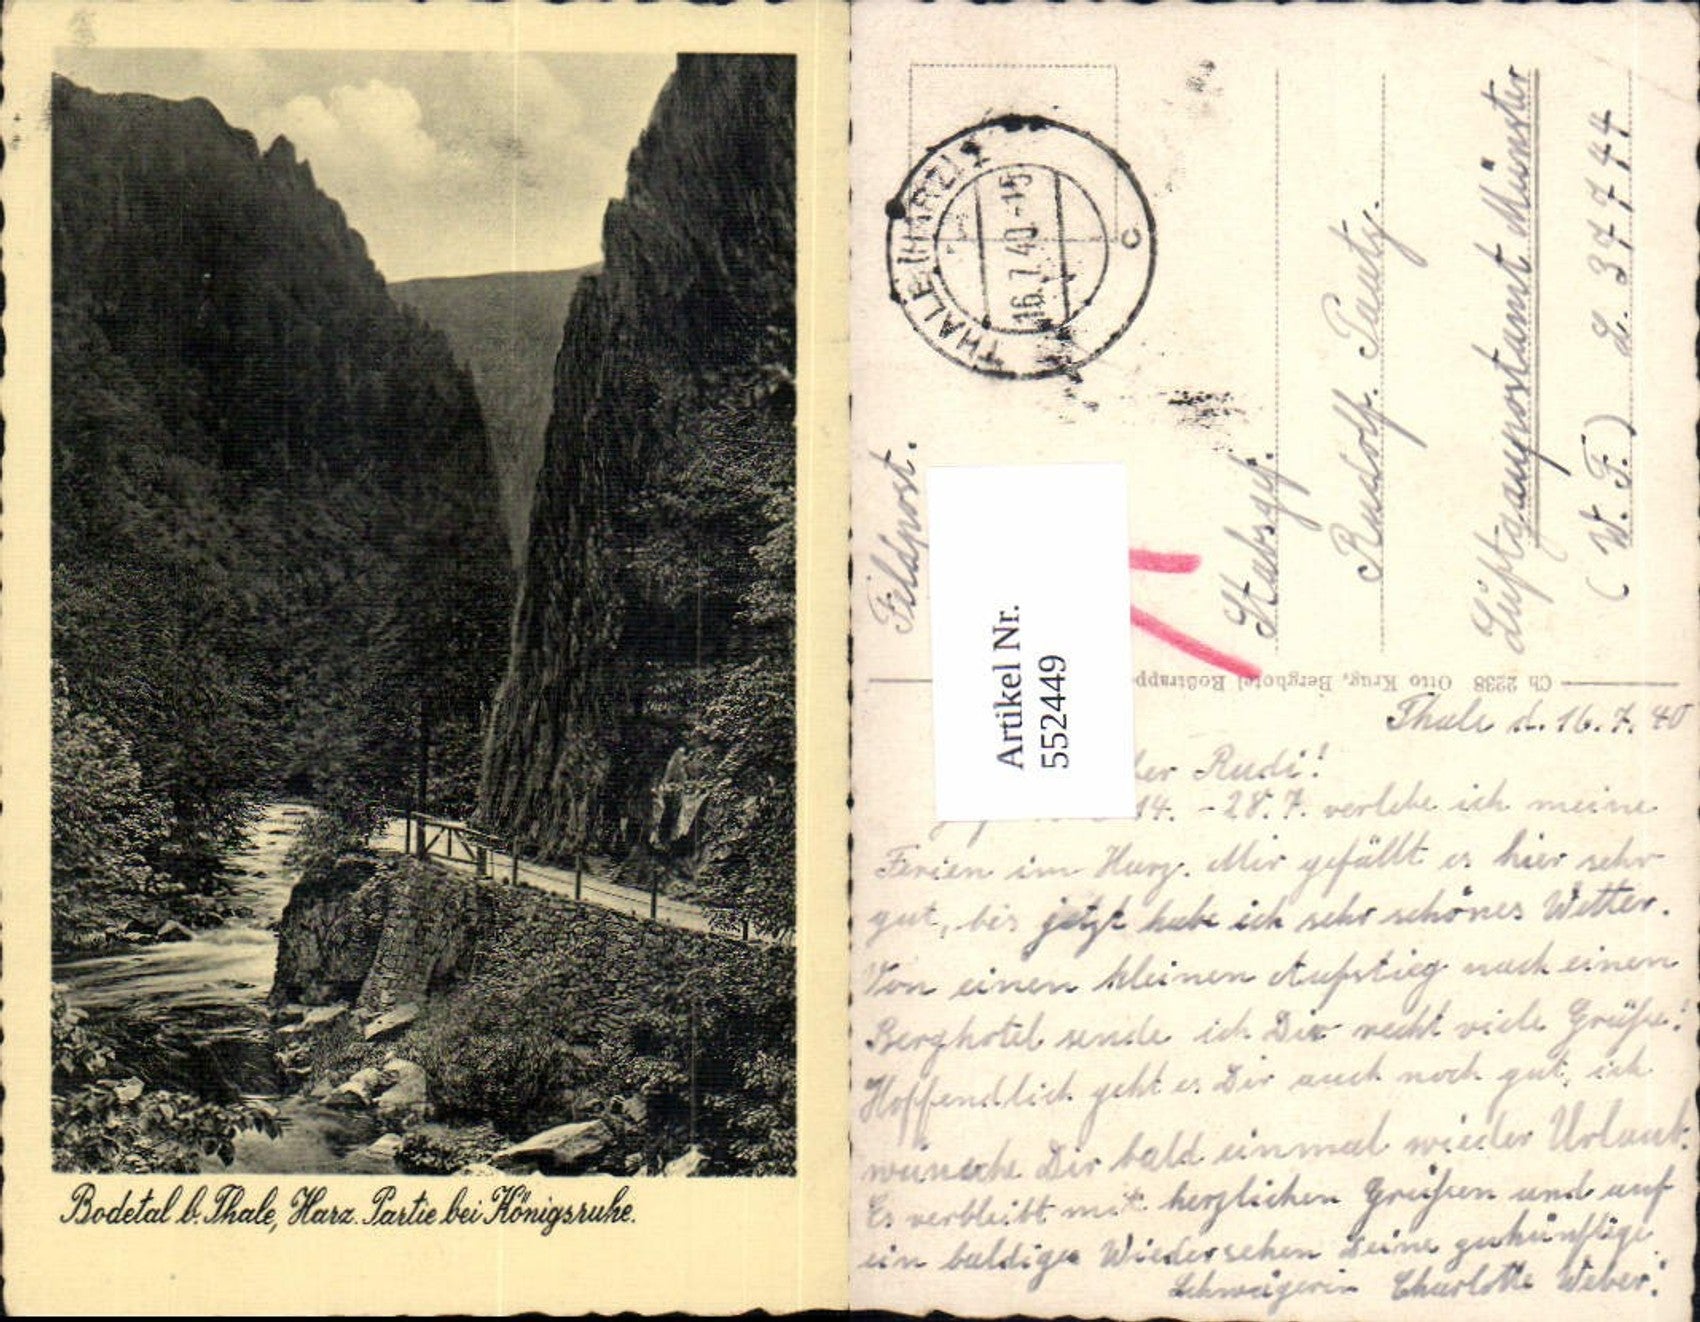 Bodetal b. Thale, Harz. Partie bei Königsruhe.
THALE (HARZ) 1
16.7.40.-15
c
Feldpost.
Artikel Nr.
552449
Stabsgef.
Rudolf
Luftgaupostamt Münster
(W. F.) L. 37744
Ch 2238 Otto Krug, Berghotel Roßtrappe
Thale d. 16.7.40
Rudi!
14. - 28.7. verlebe ich meine
Ferien im Harz. Mir gefällt es hier sehr
gut, bis jetzt habe ich sehr schönes Wetter.
Von einen kleinen Aufstieg nach einen
Berghotel sende ich Dir recht viele Grüße!
Hoffendlich geht es Dir auch noch gut, ich
wünsche Dir bald einmal wieder Urlaub.
Es verbleibt mit herzlichen Grüßen und auf
ein baldiges Wiedersehen Deine zukünftige
Schwägerin Charlotte Weber!